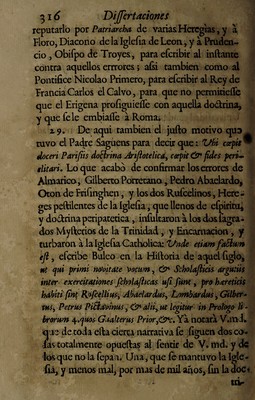 316 Dissertaciones
reputarlo por Patriarcha de varias Heregias, y à
Floro, Diacono de la Iglesia de Leon, y à Pruden-
cio, Obispo de Troyes, para escribir al instante
contra aquellos errores; assi tambien como al
Pontifice Nicolao Primero, para escribir al Rey de
Francia Carlos el Calvo, para que no permitiesse
que el Erigena prosiguiesse con aquella doctrina,
y que se le embiasse à Roma.
29. De aqui tambien el justo motivo que
tuvo el Padre Saguens para decir que: Ubi cœpit
doceri Parisiis doctrina Aristotelica, cœpit & fides peri-
clitari. Lo que acabò de confirmar los errores de
Almarico, Gilberto Porretano, Pedro Abaelardo,
Oton de Frisinghen, y los dos Ruscelinos, Here-
ges pestilentes de la Iglesia, que llenos de espiritu,
y doctrina peripatetica, insultaron à los dos sagra-
dos Mysterios de la Trinidad, y Encarnacion, y
turbaron à la Iglesia Catholica: Unde etiam factum
est, escribe Buleo en la Historia de aquel siglo,
ut qui primi novitate vocum, & Scholasticis argutiis
inter exercitationes scholasticas usi sunt, pro hæreticis
habiti sint Roscellius, Abaelardus, Lombardus, Gilber-
tus, Petrus Pictavinus, & alii, ut legitur in Prologo li-
brorum 4. quos Gualterus Prior, &c. Yà notarà V.md.
que de toda esta cierta narrativa se siguen dos co-
sas totalmente opuestas al sentir de V. md. y de
los que no la sepan. Una, que se mantuvo la Igle-
sia, y menos mal, por mas de mil años, sin la doc-